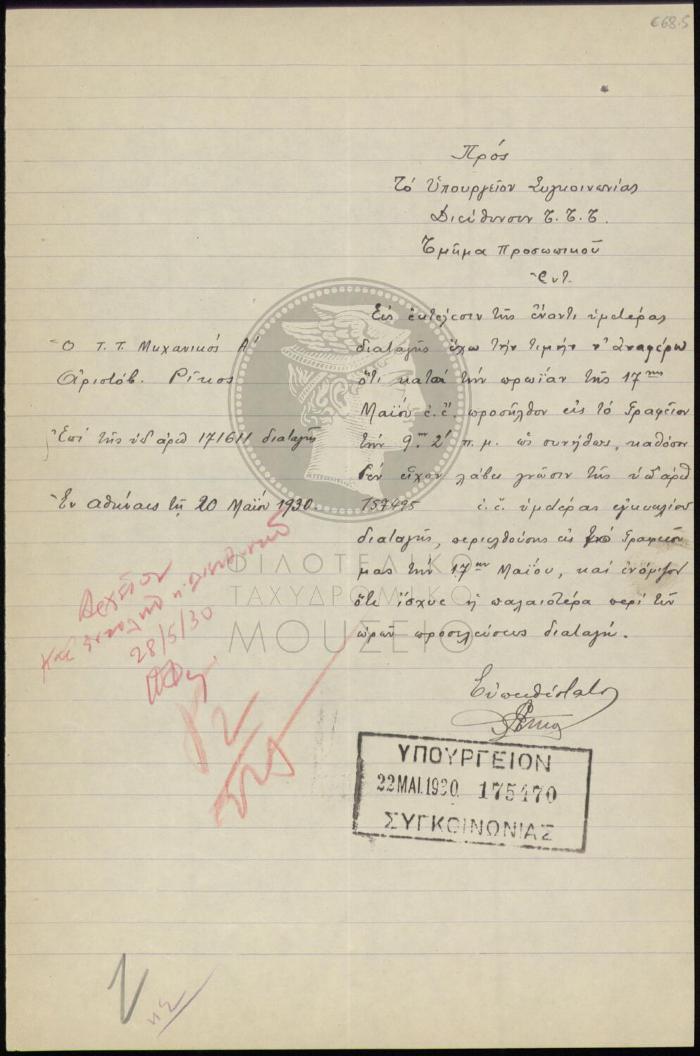 668.5
Πρός
Τό Ὑπουργεῖον Συγκοινωνίας
Διεύθυνσιν Τ.Τ.Τ.
Τμῆμα Προσωπικοῦ
Ἐντ.
Ὁ Τ.Τ. Μηχανικός Α'
Ἀριστόβ. Ρίκος
Ἐπί τῆς ὑπ' ἀριθ 171611 διαταγῆς
Ἐν Ἀθήναις τῇ 20 Μαΐου 1930.
Εἰς ἐκτέλεσιν τῆς ἔναντι ὑμετέρας
διαταγῆς ἔχω τήν τιμήν ν' ἀναφέρω
ὅτι κατά τήν πρωΐαν τῆς 17ης
Μαΐου ἐ.ἔ. προσῆλθον εἰς τό Γραφεῖον
τήν 9ην π.μ. ὡς συνήθως, καθόσον
δέν εἶχον λάβει γνῶσιν τῆς ὑπ' ἀριθ
157495 ἐ.ἔ. ὑμετέρας ἐγκυκλίου
διαταγῆς, περιελθούσης εἰς τό Γραφεῖον
μας τήν 17ην Μαΐου, καί ἐνόμιζον
ὅτι ἴσχυε ἡ παλαιοτέρα περί τῶν
ὡρῶν προσελεύσεως διαταγή.
Εὐπειθέστατος
Ἀρχεῖον
28/5/30
ΥΠΟΥΡΓΕΙΟΝ
22 ΜΑΙ.1930 175470
ΣΥΓΚΟΙΝΩΝΙΑΣ
ΦΙΛΟΤΕΛΙΚΟ
ΤΑΧΥΔΡΟΜΙΚΟ
ΜΟΥΣΕΙΟ